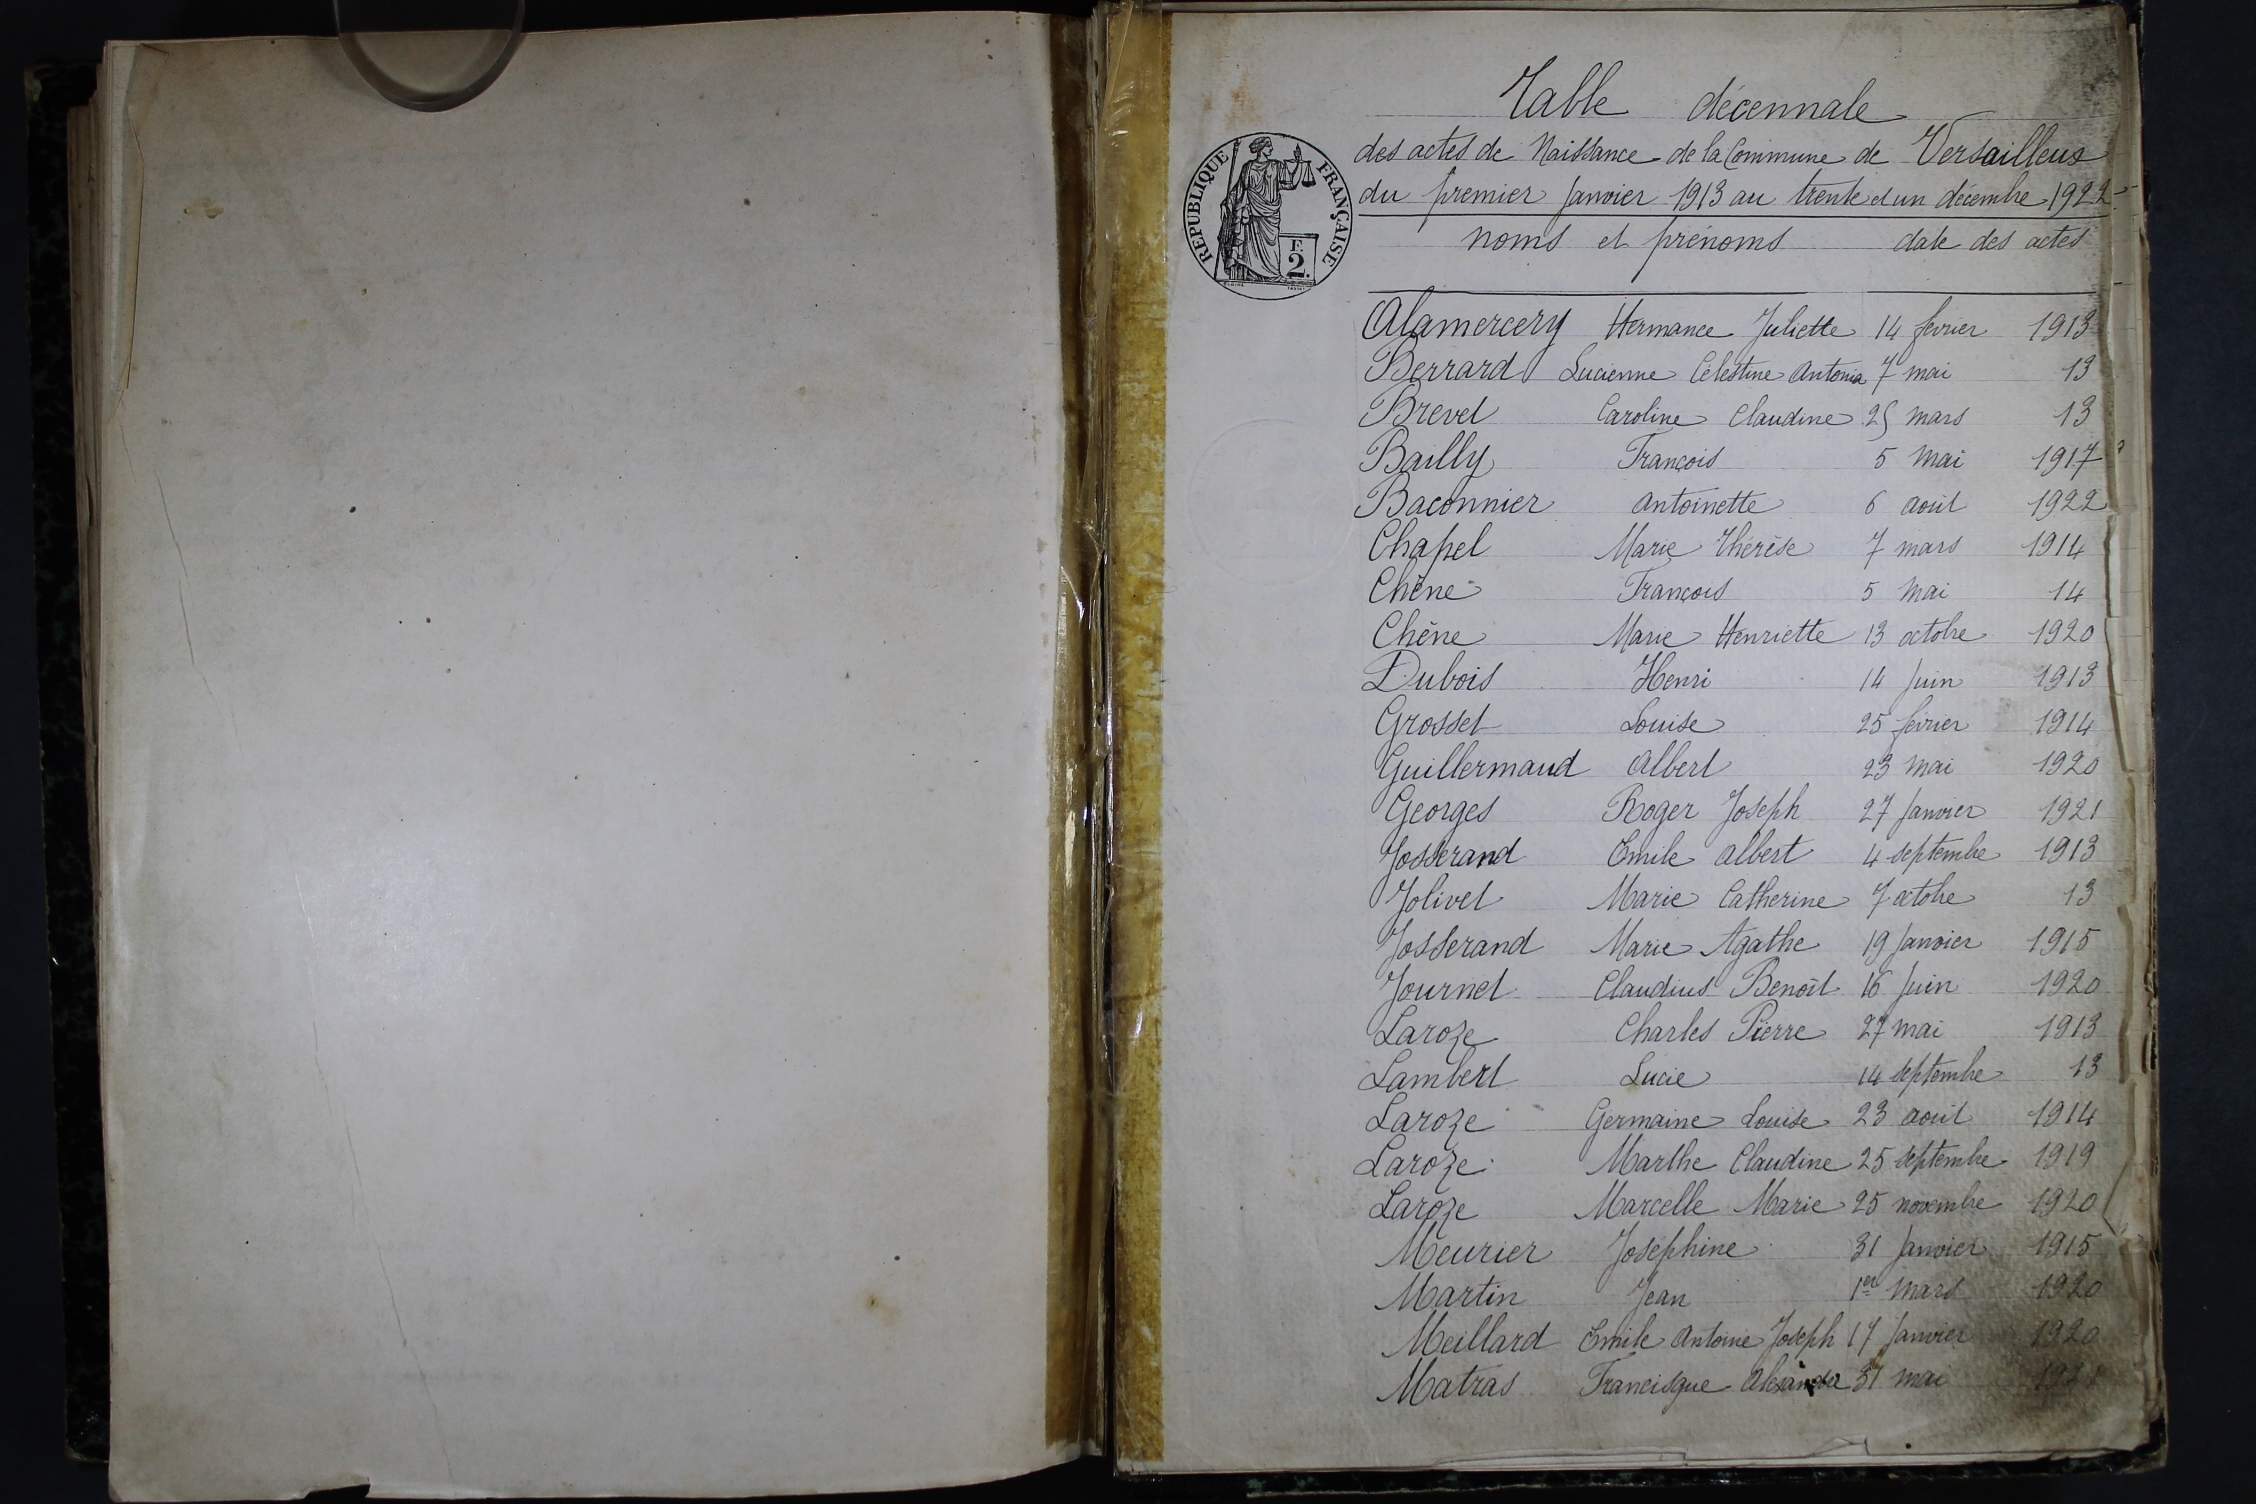 Table décennale
des actes de Naissance de la Commune de Versailleux
du premier Janvier 1913 au trente et un décembre 1922
RÉPUBLIQUE FRANÇAISE
F. 2.
noms et prénoms date des actes
Alamercery Hermance Juliette 14 février 1913
Berrard Lucienne Célestine Antonia 7 mai 13
Brevet Caroline Claudine 25 mars 13
Bailly François 5 Mai 1917
Baconnier Antoinette 6 août 1922
Chapel Marie Thérèse 7 mars 1914
Chêne François 5 Mai 14
Chêne Marie Henriette 13 octobre 1920
Dubois Henri 14 Juin 1913
Grosset Louise 25 février 1914
Guillermaud Albert 23 Mai 1920
Georges Roger Joseph 27 Janvier 1921
Josserand Emile Albert 4 septembre 1913
Jolivet Marie Catherine 7 octobre 13
Josserand Marie Agathe 19 Janvier 1915
Journet Claudius Benoît 16 Juin 1920
Laroze Charles Pierre 27 mai 1913
Lambert Lucie 14 septembre 13
Laroze Germaine Louise 23 août 1914
Laroze Marthe Claudine 25 septembre 1919
Laroze Marcelle Marie 25 novembre 1920
Meurier Joséphine 31 Janvier 1915
Martin Jean 1er Mars 1920
Meillard Emile Antoine Joseph 17 Janvier 1920
Matras Francisque 31 mai